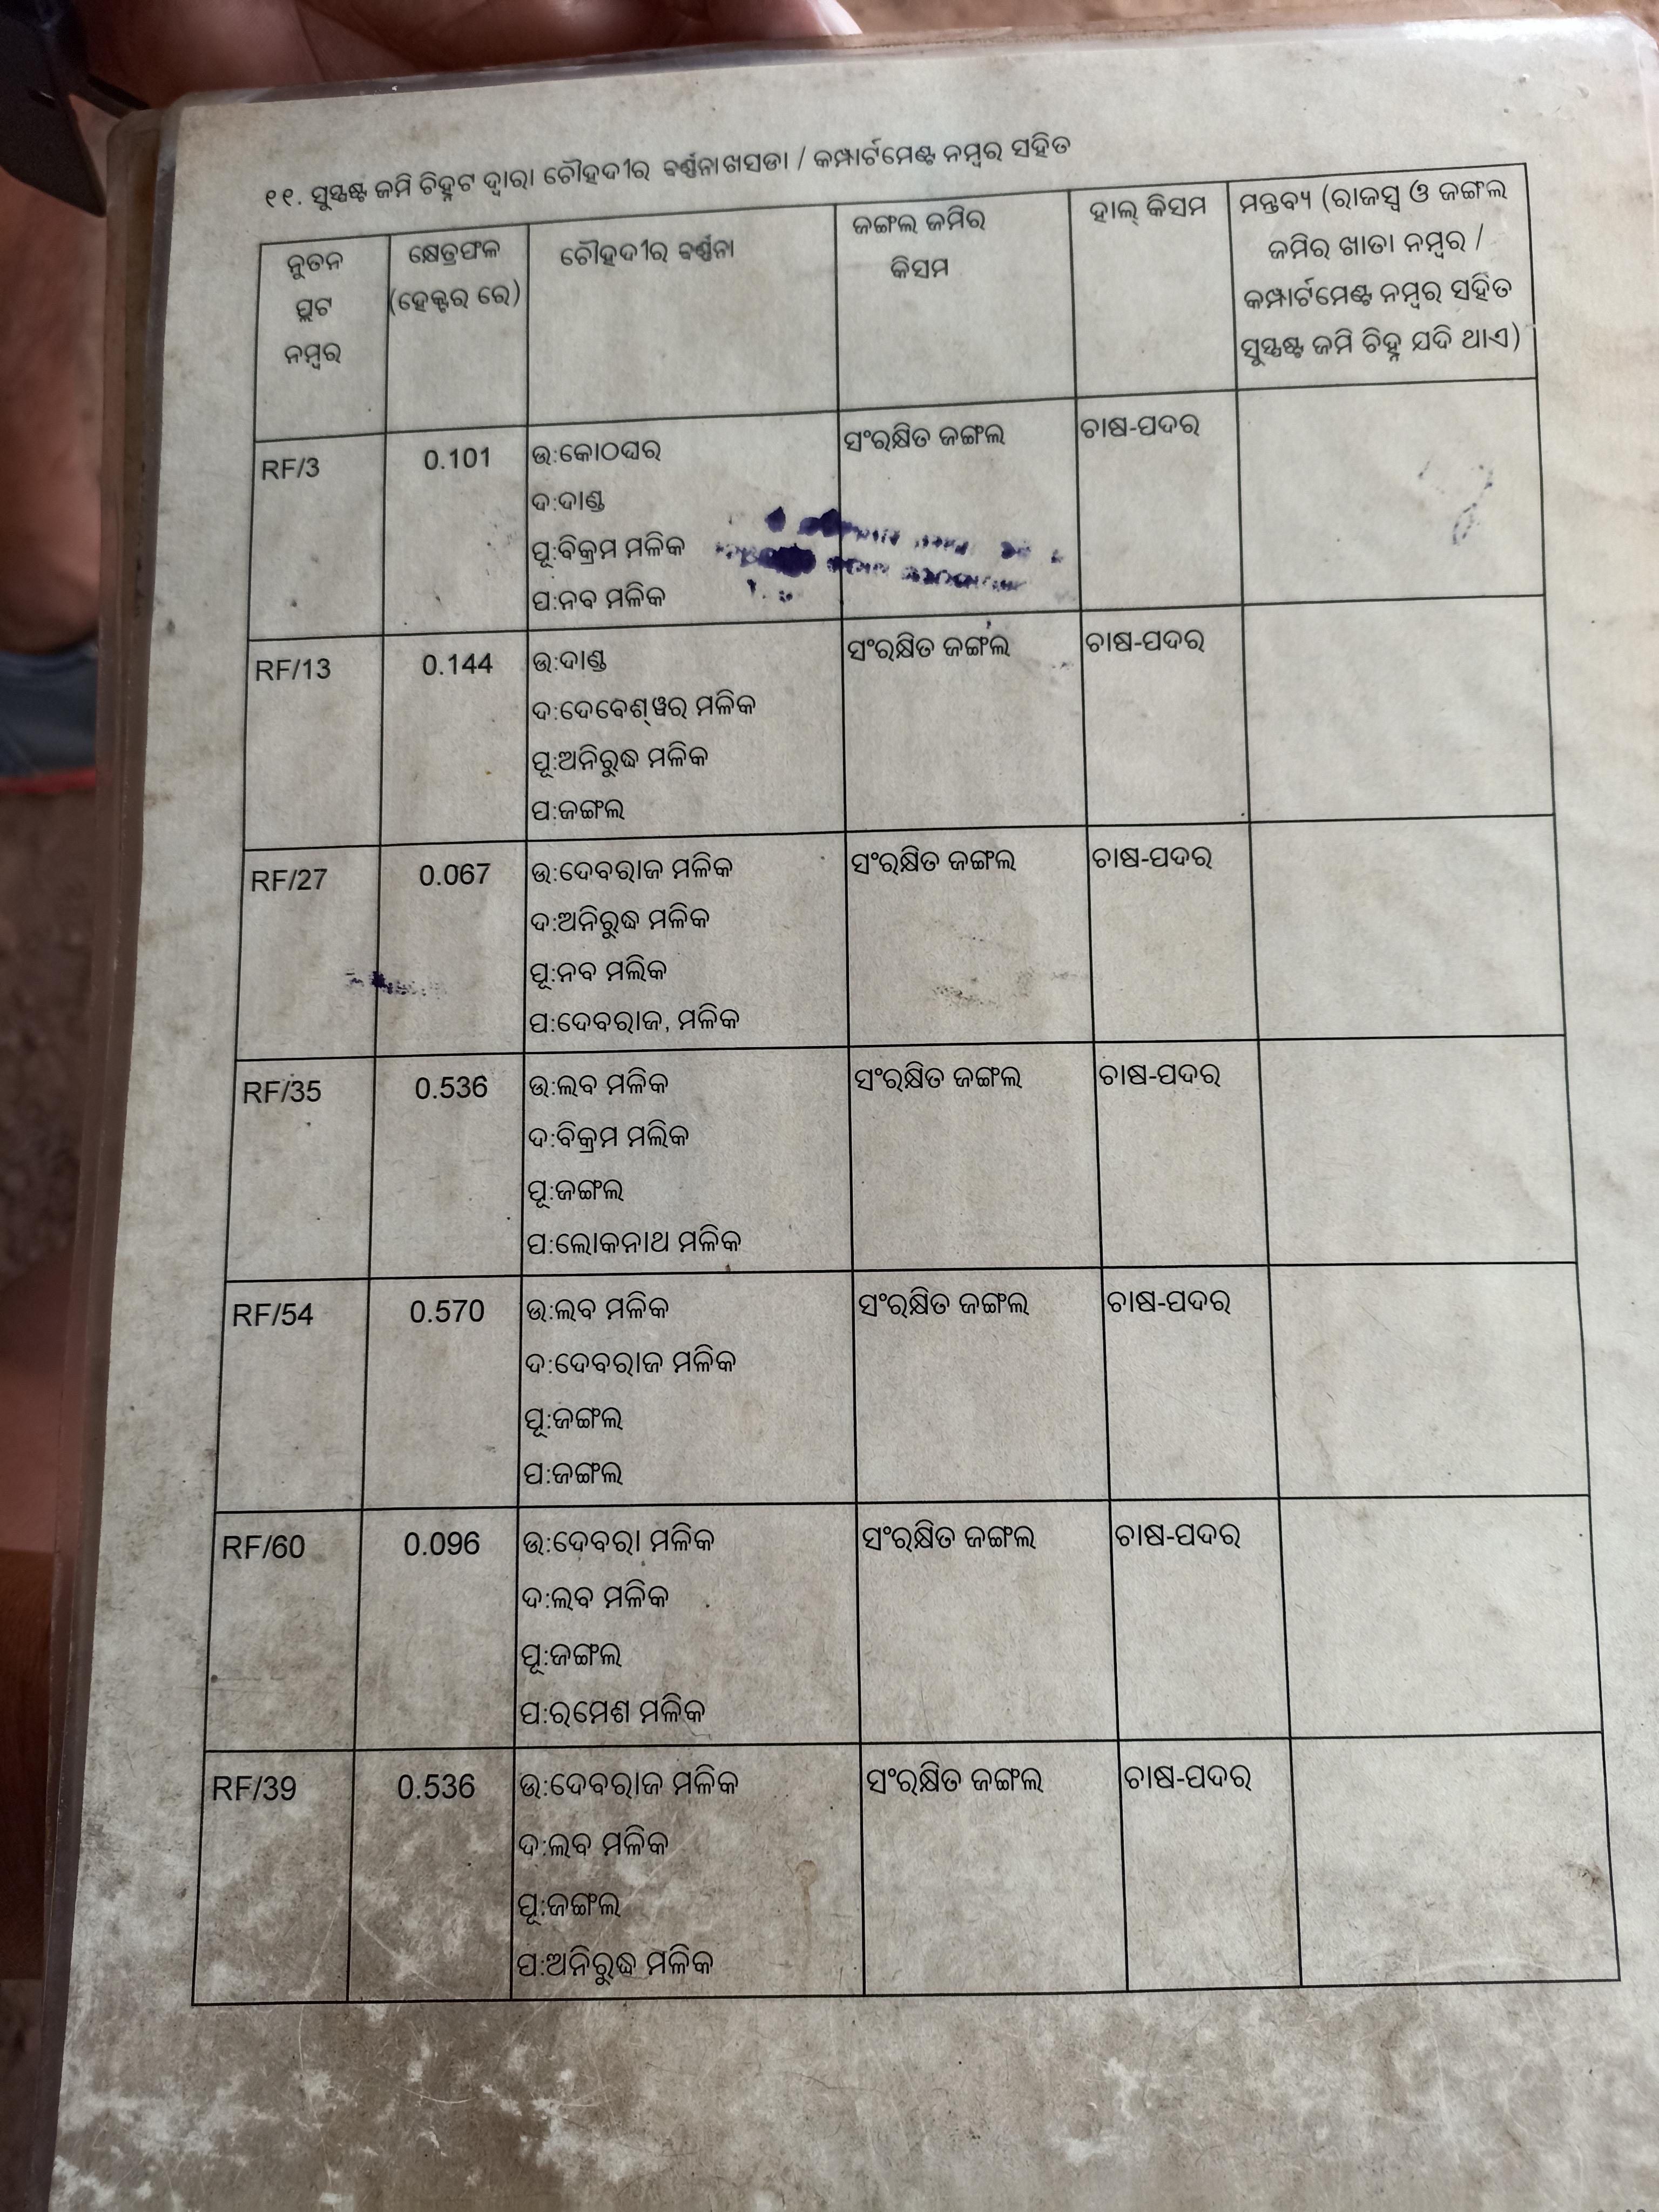 ୧୧. ସୁସ୍ପଷ୍ଟ ଜମି ଚିହ୍ନଟ ଦ୍ୱାରା ଚୌହଦୀର ବର୍ଣ୍ଣନା ଖସଡା / କମ୍ପାର୍ଟମେଣ୍ଟ ନମ୍ବର ସହିତ
ନୁତନ
ପ୍ଲଟ
ନମ୍ବର
କ୍ଷେତ୍ରଫଳ
(ହେକ୍ଟର ରେ)
ଚୌହଦୀର ବର୍ଣ୍ଣନା
ଜଙ୍ଗଲ ଜମିର
କିସମ
ହାଲ୍ କିସମ
ମନ୍ତବ୍ୟ (ରାଜସ୍ୱ ଓ ଜଙ୍ଗଲ
ଜମିର ଖାତା ନମ୍ବର /
କମ୍ପାର୍ଟମେଣ୍ଟ ନମ୍ବର ସହିତ
ସୁସ୍ପଷ୍ଟ ଜମି ଚିହ୍ନ ଯଦି ଥାଏ)
RF/3
0.101
ଉ:କୋଠଘର
ଦ:ଦାଣ୍ଡ
ପୂ:ବିକ୍ରମ ମଳିକ
ପ:ନବ ମଳିକ
ସଂରକ୍ଷିତ ଜଙ୍ଗଲ
ଚାଷ-ପଦର
RF/13
0.144
ଉ:ଦାଣ୍ଡ
ଦ:ଦେବେଶ୍ୱର ମଳିକ
ପୂ:ଅନିରୁଦ୍ଧ ମଳିକ
ପ:ଜଙ୍ଗଲ
ସଂରକ୍ଷିତ ଜଙ୍ଗଲ
ଚାଷ-ପଦର
RF/27
0.067
ଉ:ଦେବରାଜ ମଳିକ
ଦ:ଅନିରୁଦ୍ଧ ମଳିକ
ପୂ:ନବ ମଲିକ
ପ:ଦେବରାଜ, ମଳିକ
ସଂରକ୍ଷିତ ଜଙ୍ଗଲ
ଚାଷ-ପଦର
RF/35
0.536
ଉ:ଲବ ମଳିକ
ଦ:ବିକ୍ରମ ମଲିକ
ପୂ:ଜଙ୍ଗଲ
ପ:ଲୋକନାଥ ମଳିକ
ସଂରକ୍ଷିତ ଜଙ୍ଗଲ
ଚାଷ-ପଦର
RF/54
0.570
ଉ:ଲବ ମଳିକ
ଦ:ଦେବରାଜ ମଳିକ
ପୂ:ଜଙ୍ଗଲ
ପ:ଜଙ୍ଗଲ
ସଂରକ୍ଷିତ ଜଙ୍ଗଲ
ଚାଷ-ପଦର
RF/60
0.096
ଉ:ଦେବରା ମଳିକ
ଦ:ଲବ ମଳିକ
ପୂ:ଜଙ୍ଗଲ
ପ:ରମେଶ ମଳିକ
ସଂରକ୍ଷିତ ଜଙ୍ଗଲ
ଚାଷ-ପଦର
RF/39
0.536
ଉ:ଦେବରାଜ ମଳିକ
ଦ:ଲବ ମଳିକ
ପୂ:ଜଙ୍ଗଲ
ପ:ଅନିରୁଦ୍ଧ ମଳିକ
ସଂରକ୍ଷିତ ଜଙ୍ଗଲ
ଚାଷ-ପଦର